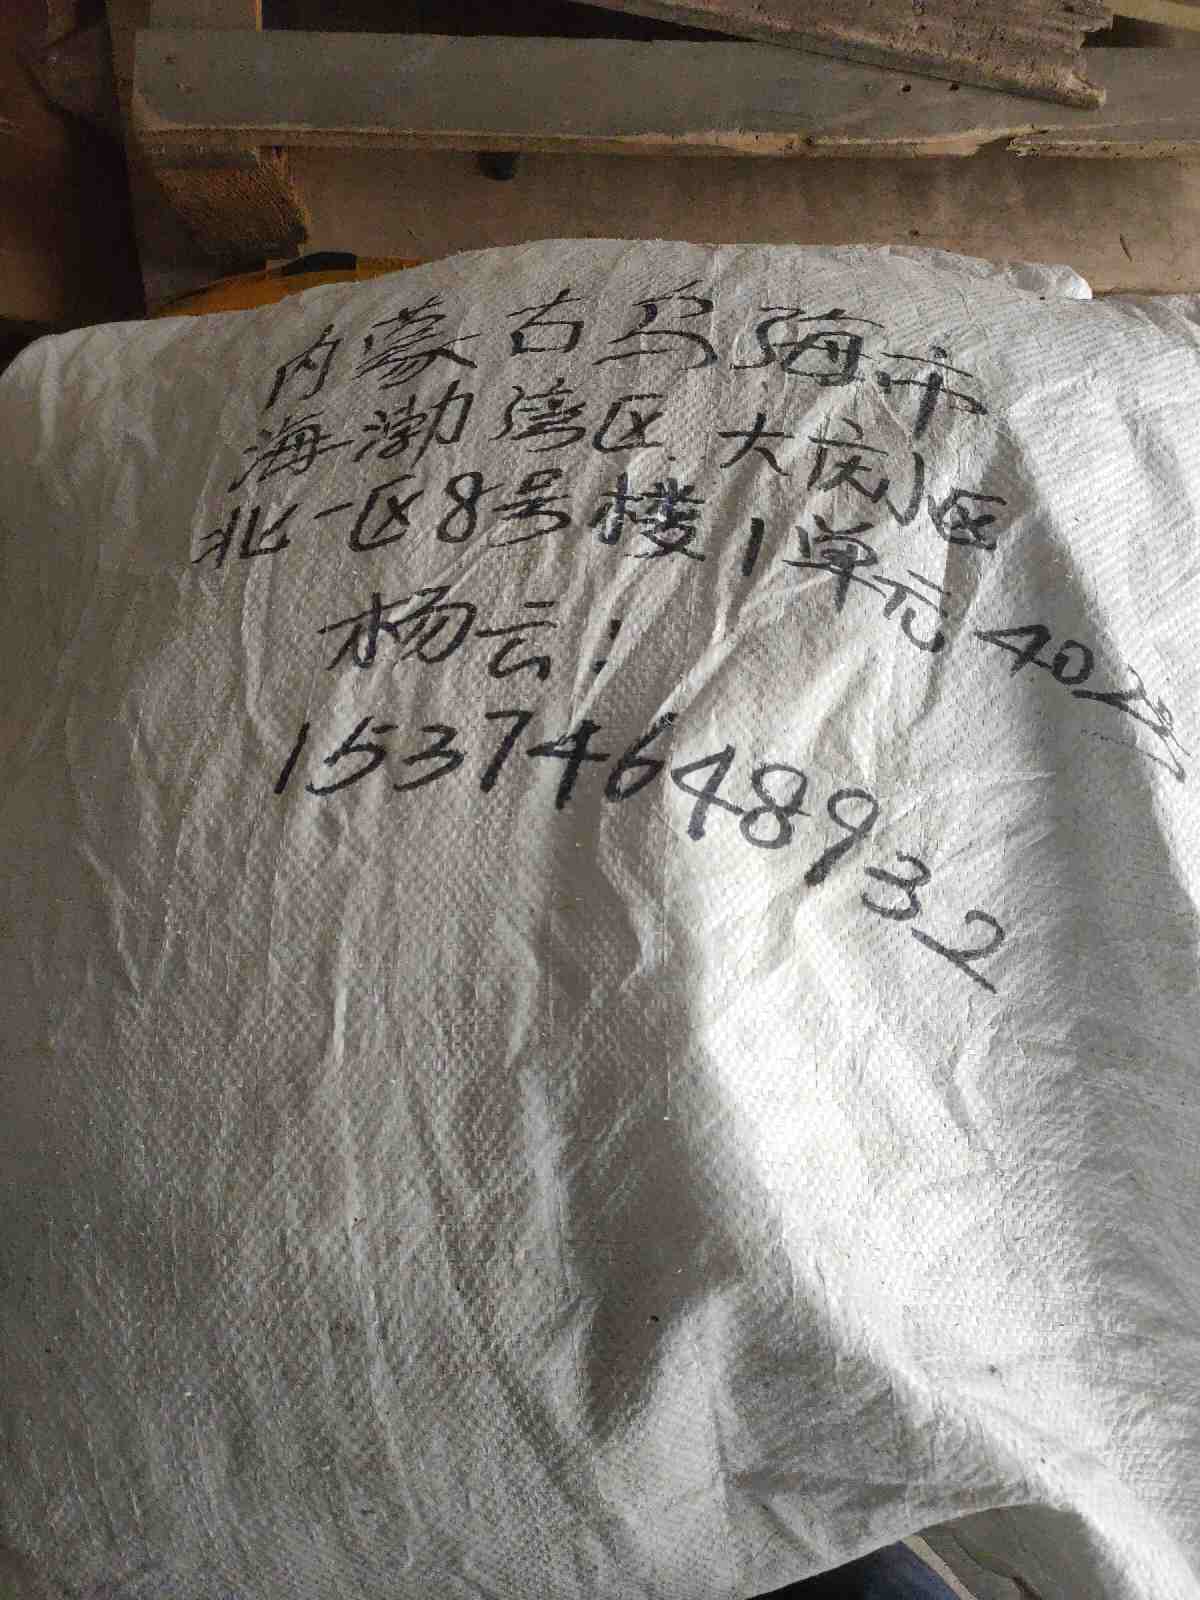 内蒙古乌海市
海渤湾区大庆小区
北一区8号楼1单元402
杨云:
15374648932